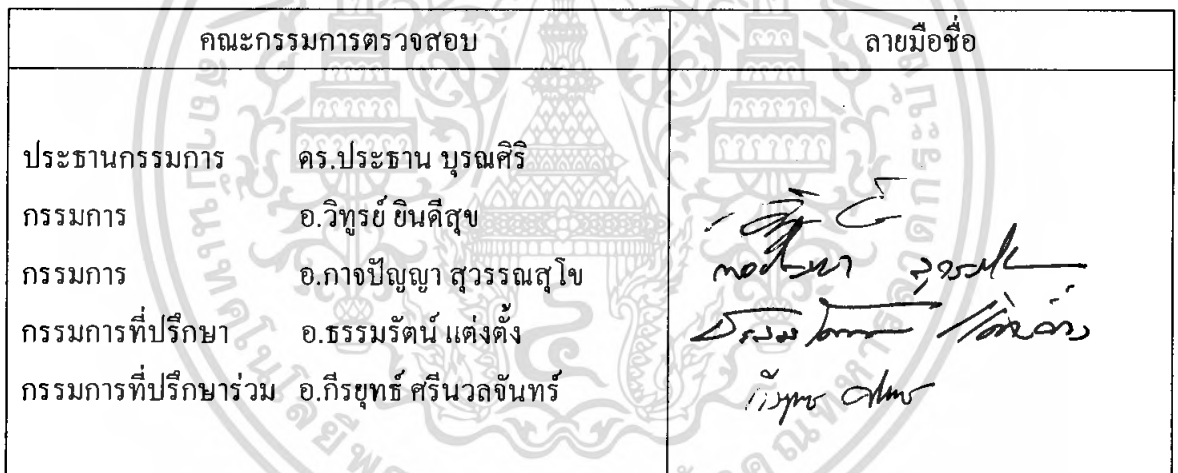 คณะกรรมการตรวจสอบ ลายมือชื่อ
ประธานกรรมการ ดร.ประธาน บุรณศิริ
กรรมการ อ.วิทูรย์ ยินดีสุข
กรรมการ อ.กาจปัญญา สุวรรณสุโข
กรรมการที่ปรึกษา อ.ธรรมรัตน์ แต่งตั้ง
กรรมการที่ปรึกษาร่วม อ.กีรยุทธ์ ศรีนวลจันทร์